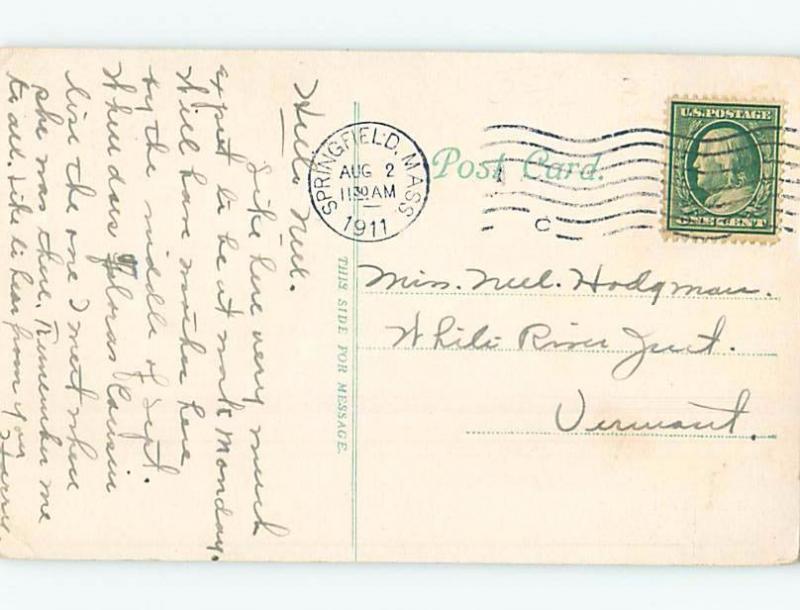 Hello Nell.
Like here very much
expect to be at work Monday.
Will have mother here
by the middle of Sept.
When does cousin
live the one I met when
she was there. Remember me
to all. Like to hear from you
Harry.
THIS SIDE FOR MESSAGE.
Post Card.
SPRINGFIELD, MASS.
AUG 2
11 30 AM
1911
C
U.S. POSTAGE
ONE CENT
Miss. Nell. Hodgman.
White River Junt.
Vermont.